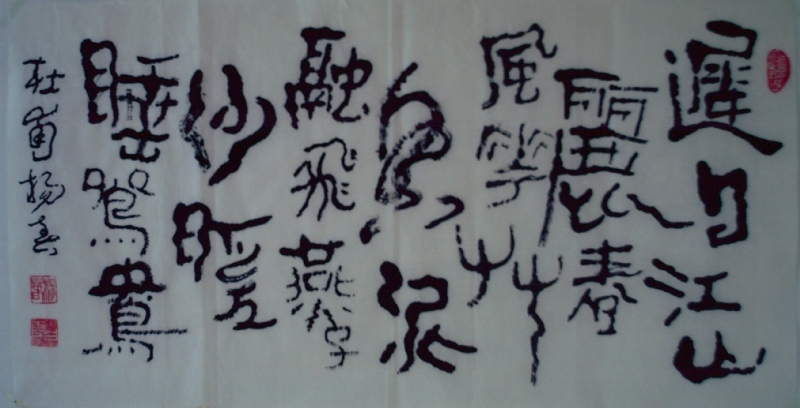 遲日江山
麗春
風華艸
香泥
融飛燕子
沙暖
睡鴛鴦
杜甫